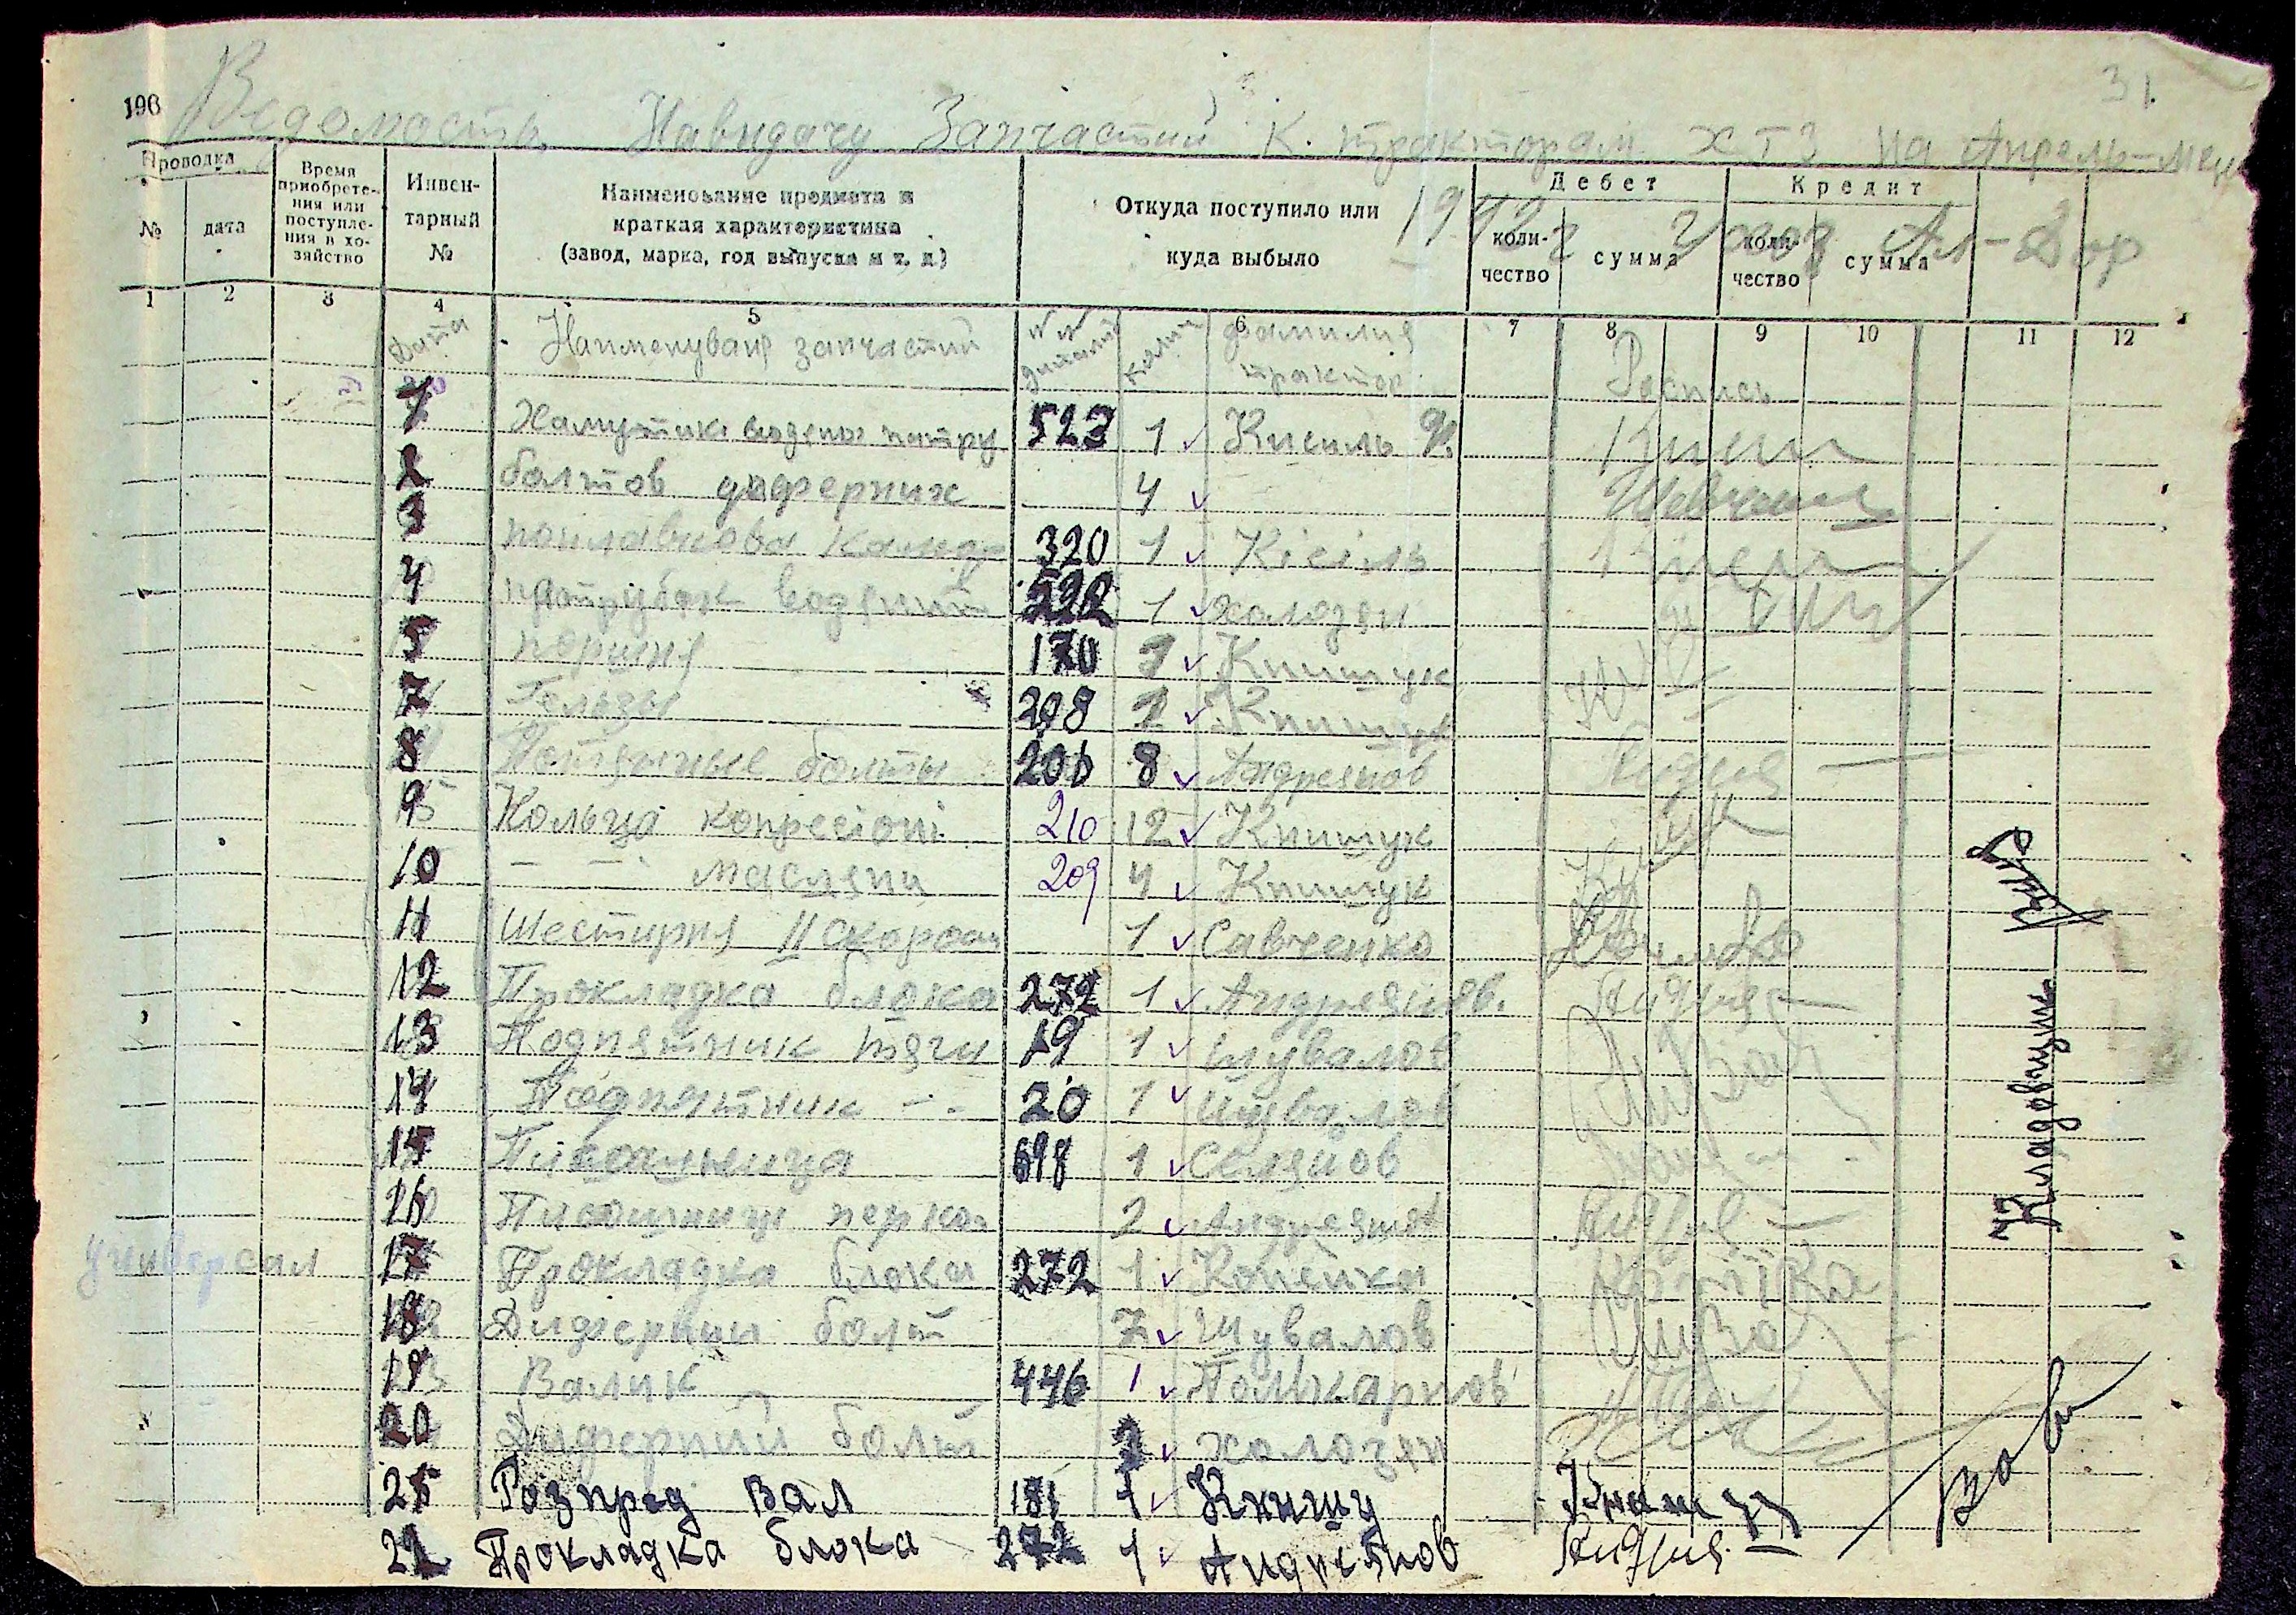 31
196
Ведомость Навидачу Запчастий К. тракторам ХТЗ на Апрель-мец
1942 г
Проводка
№
дата
Время приобрете-
ния или
поступле-
ния в хо-
зяйство
Инвен-
тарный
№
Наименование предмета и
краткая характеристика
(завод, марка, год выпуска и т. д.)
Откуда поступило или
куда выбыло
Дебет
коли-
чество
сумма
Кредит
коли-
чество
сумма
1 2 3 4 5 6 7 8 9 10 11 12
Дата Наименуваня запчастий №№ Фамилия трактор. Роспись
1 Хамутик водяные патру 523 1 Кисиль
2 болтов 4
3 поплавкова камер 320 1 Кісіль
4 патрубок водяний 522 1 Халозян
5 поршня 170 Книшук
7 Гильзы 208 Книшук
8 Потяжные болты 206 8 Андреянов
9 Кольца конресіоні 210 12 Книшук
10 — — масляни 209 4 Книшук
11 Шестирня II скорост 1 Савченко
12 Прокладка блока 272 1 Андреянов.
13 Подпятник тяги 19 1 Шувалов
14 Подпятник -- 20 1 Шувалов
15 698 1
16 2 Андреянов
Универсал
17 Прокладка блока 272 1 Копейка Копійка
18 болт 7 Шувалов
19 Валик 446 1 Поликарпов
20 Диферний болт Халозян
21 Розпред Вал 181 1 Книшу
22 Прокладка блока 272 1 Андреянов
Кладовщик